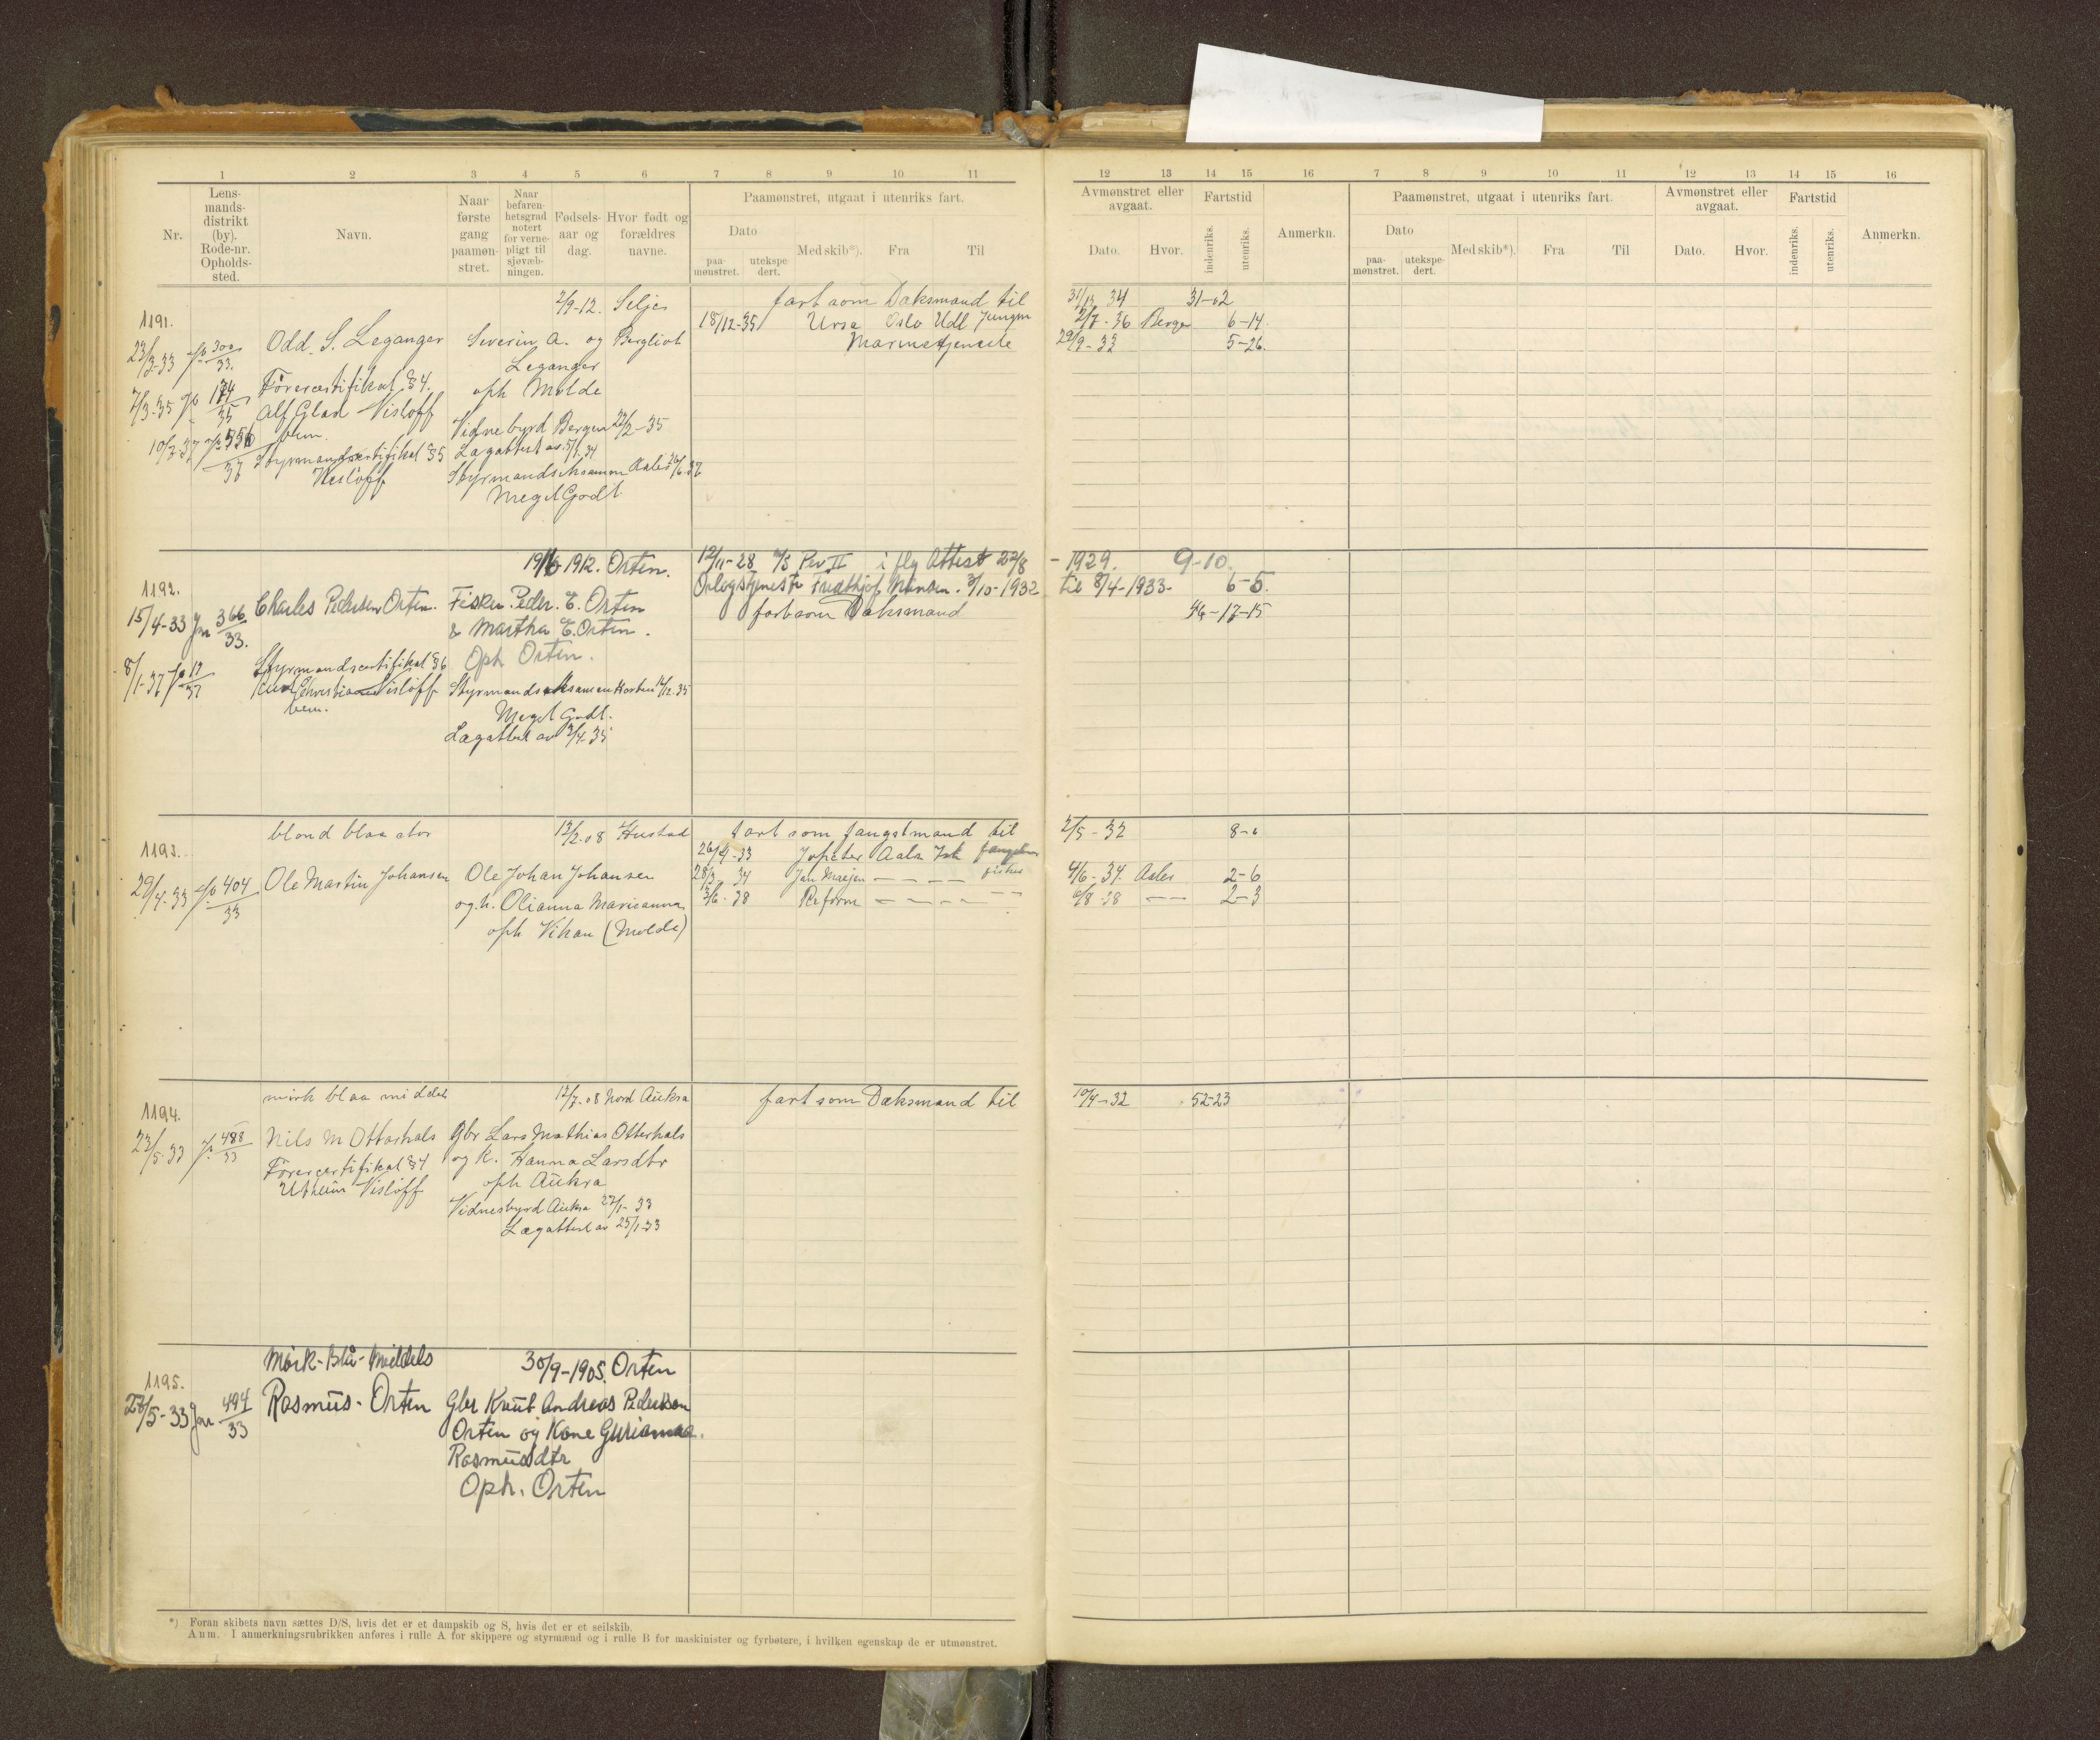 1 2 3 4 5 6 7 8 9 10 11 12 13 14 15 16 7 8 9 10 11 12 13 14 15 16
Nr.
Lens-
mands-
distrikt
(by).
Rode-nr.
Opholds-
sted.
Navn.
Naar
første
gang
paamøn-
stret.
Naar
befaren-
hetsgrad
notert
for verne-
pligt til
sjøvæb-
ningen.
Fødsels-
aar og
dag.
Hvor født og
forældres
navne.
Paamønstret, utgaat i utenriks fart.
Dato
paa-
mønstret.
utekspe-
dert.
Med skib*).
Fra
Til
Avmønstret eller
avgaat.
Dato.
Hvor.
Fartstid
indenriks.
utenriks.
Anmerkn.
Paamønstret, utgaat i utenriks fart.
Dato
paa-
mønstret.
utekspe-
dert.
Med skib*).
Fra
Til
Avmønstret eller
avgaat.
Dato.
Hvor.
Fartstid
indenriks.
utenriks.
Anmerkn.
2/9-12. Selje
fart som Dæksmand til 31/12 34 31-02
1191.
18/12-35 Ursa Oslo Udl Jungm 2/7-36 Bergen 6-14.
23/3-33 Jn 300/33. Odd. S. Leganger Severin A. og Bergliot
Marinetjeneste 29/9-33 5-26.
Leganger
7/3-35 Jn 174/35 Førercertifikat §4. oph Molde
Alf Glad Visløff
bem. Vidnebyrd Bergen 22/2-35
10/7-37 Jn 556/37 Styrmandscertifikat §5 Lægattest av. 5/1.34
Visløff Styrmandseksamen Aales 26/6.37
Meget Godt
19/6-1912. Orten. 12/11-28 M/S Per II i flg Attest 22/8 - 1929. 9-10.
1192.
Orlogstjeneste Fridthjof Nansen. 3/10-1932 til 8/4-1933- 6-5.
15/4-33 Jn 366/33. Charles Pedersen Orten. Fisker Peder. E. Orten
fart som Dæksmand 46-17-15
& Martha E. Orten.
Oph Orten.
8/1-37 Jn 12/37 Styrmandscertifikat §6
Christian Visløff Styrmandseksamen Horten 14/12.35
bem.
Meget Godt.
Lægattest av 3/4-35
blond blaa stor 12/2.08 Hustad fart som fangstmand til 2/5-32 8-0
1193.
26/4-33 Jopeter Aales Ish fangstm
29/4-33 Jn 404/33 Ole Martin Johansen Ole Johan Johansen
28/3-34 Jan Maajen — — — — fisker 4/6-34 Aales 2-6
og h. Olianna Marieanna
3/6-38 Reform — — — — — — 6/8-38 — — 2-3
oph Vikan (Molde)
mörk blaa middels 12/7.08 Nord Aukra fart som Dæksmand til 10/4-32 52-23
1194.
23/5-33 Jn 488/33 Nils M Otterhals Gbr Lars Mathias Otterhals
og k. Hanna Larsdtr
Førercertifikat §4 oph Aukra
Utheim Visløff
Vidnesbyrd Aukra 27/1-33
Lægattest av 25/1-33
Mörk-Blå-Middels 30/9-1905. Orten
1195.
28/5-33 Jnr 494/33 Rasmus Orten Gbr Knut Andreas Pedersen
Orten og Kone Gurianna.
Rasmusdtr
Oph. Orten
*) Foran skibets navn sættes D/S, hvis det er et dampskib og S, hvis det er et seilskib.
Anm. I anmerkningsrubrikken anføres i rulle A for skippere og styrmænd og i rulle B for maskinister og fyrbøtere, i hvilken egenskap de er utmønstret.